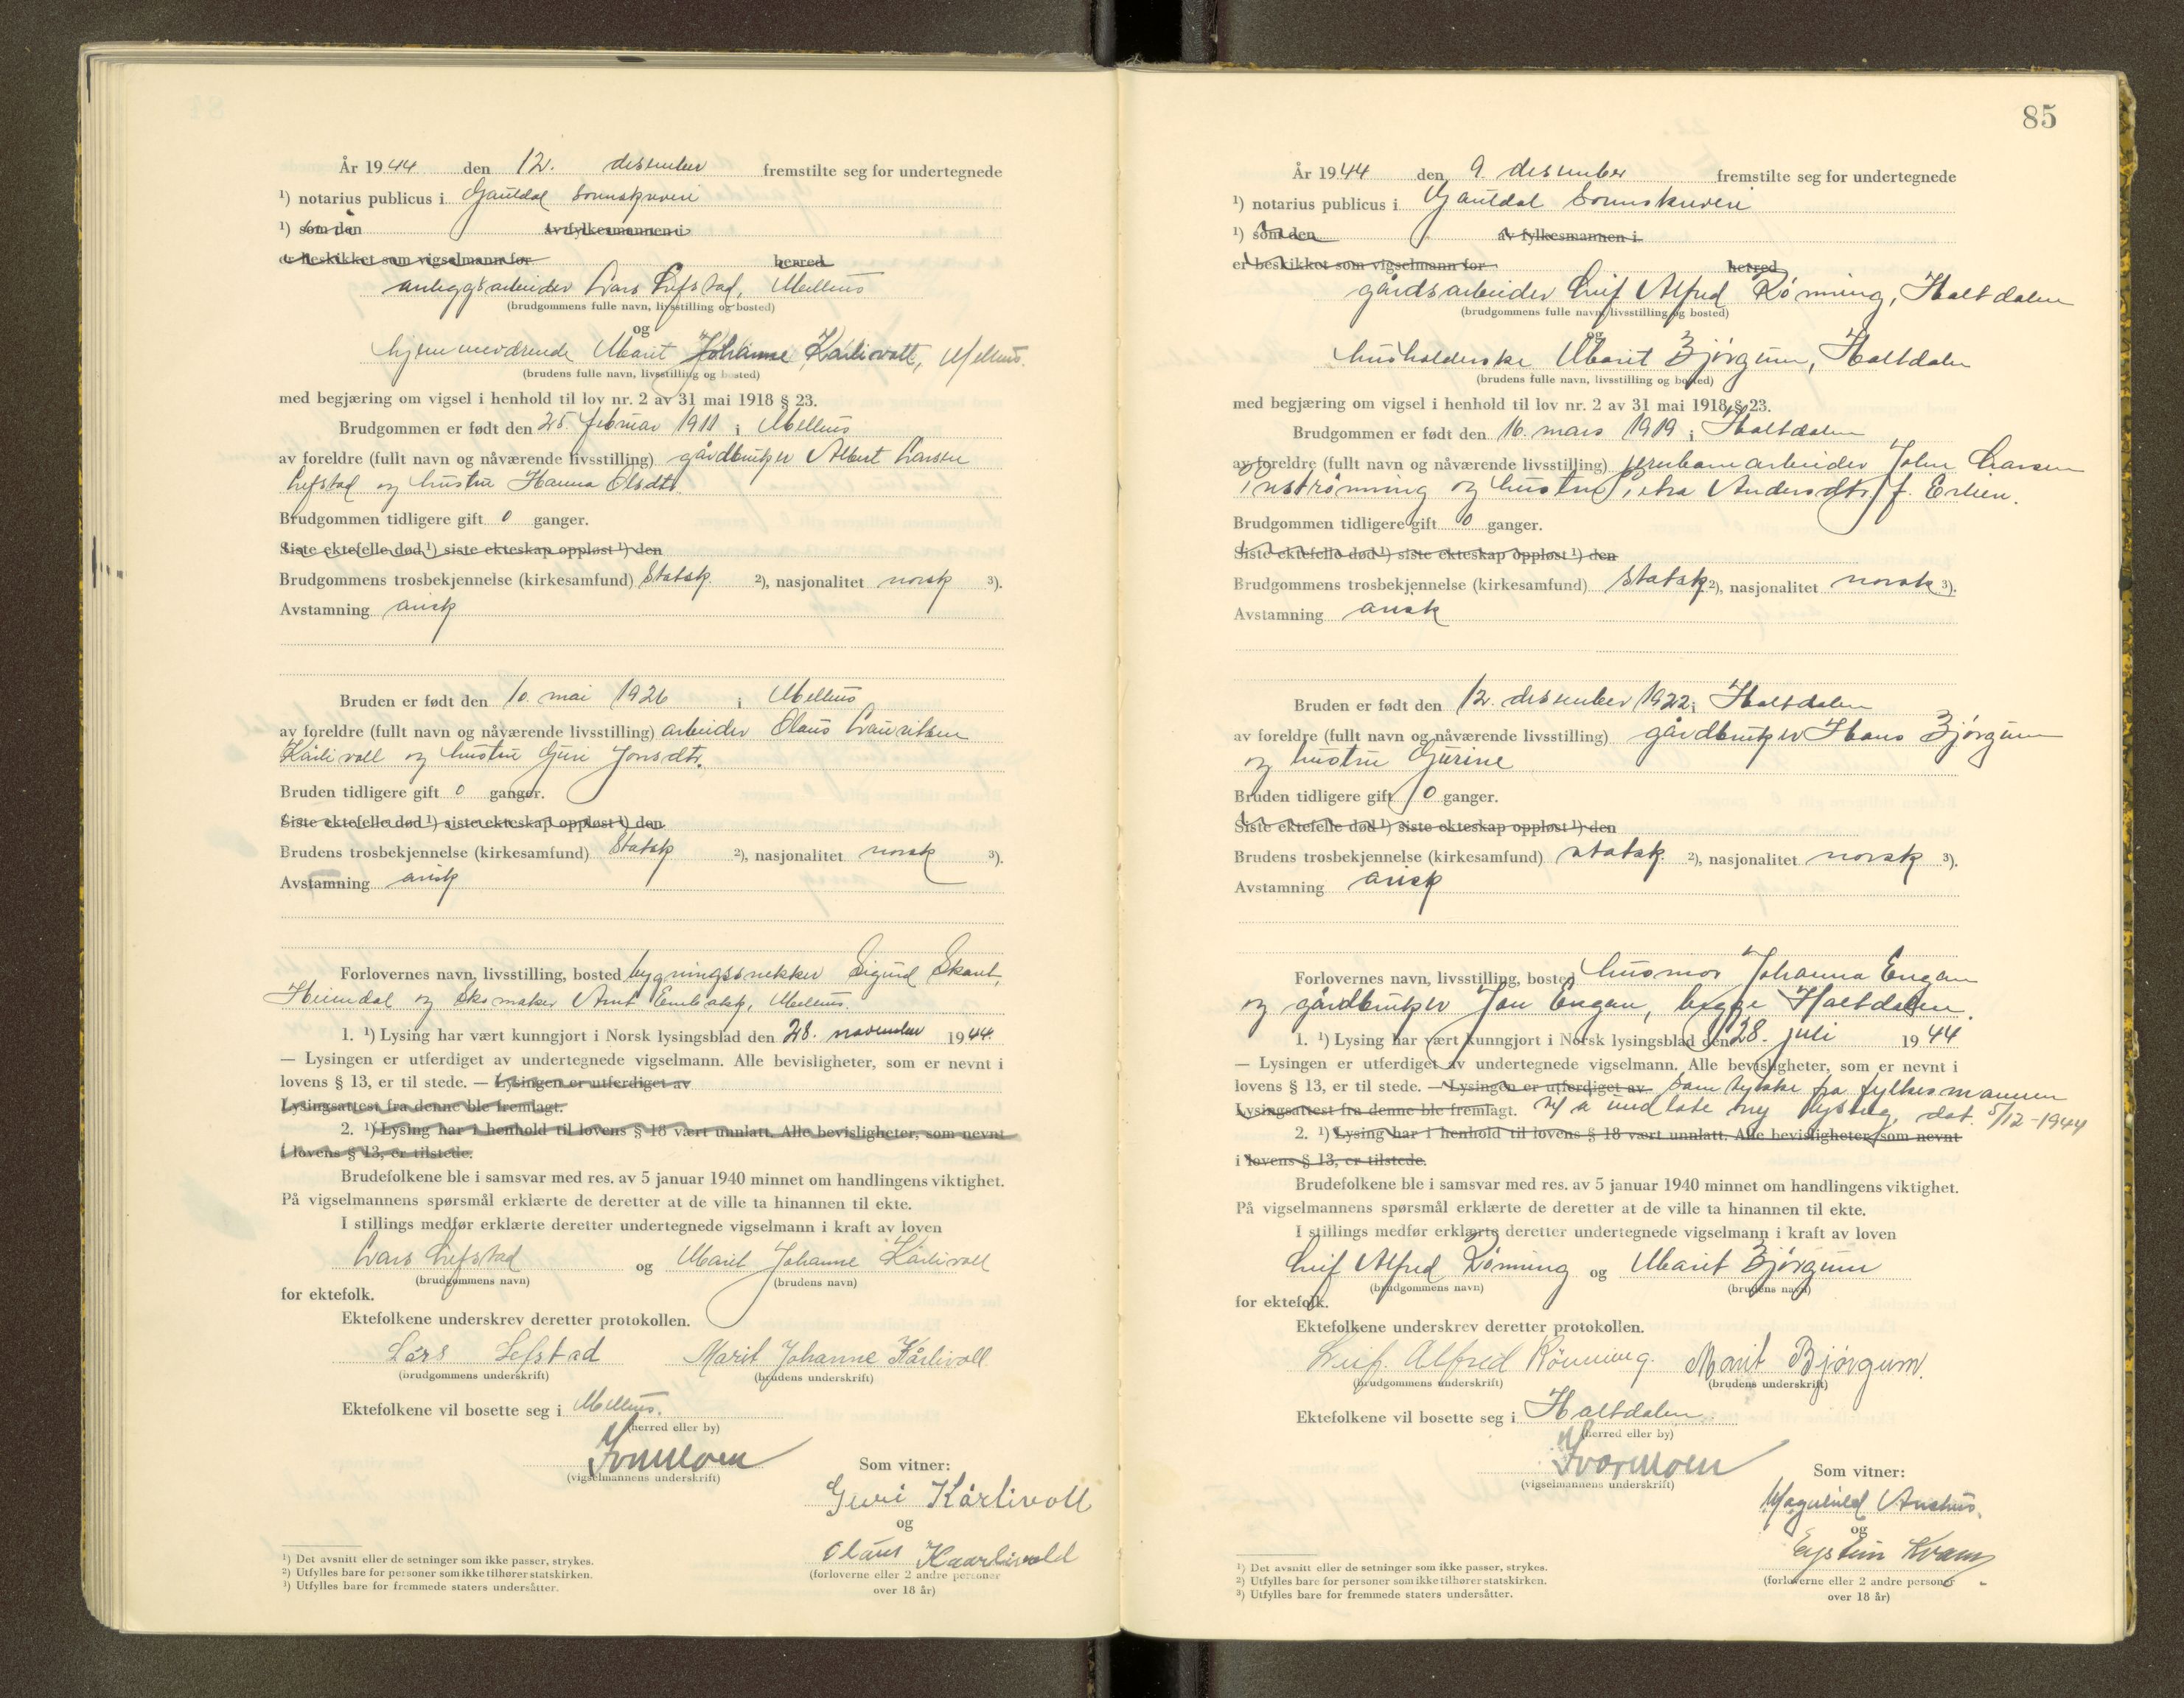 År 1944 den 12. desember fremstilte seg for undertegnede
¹) notarius publicus i Gauldal Sorenskriveri
¹) som den av fylkesmannen i
er beskikket som vigselmann for herred
anleggsarbeider Lars Lefstad, Melhus
(brudgommens fulle navn, livsstilling og bosted)
og
hjemmeværende Marit Johanne Kårlivoll, Melhus.
(brudens fulle navn, livsstilling og bosted)
med begjæring om vigsel i henhold til lov nr. 2 av 31 mai 1918 § 23.
Brudgommen er født den 25. februar 1911 i Melhus
av foreldre (fullt navn og nåværende livsstilling) gårdbruker Albert Larsen
Lefstad og hustru Hanna Olsdtr.
Brudgommen tidligere gift 0 ganger.
Siste ektefelle død ¹) siste ekteskap oppløst ¹) den
Brudgommens trosbekjennelse (kirkesamfund) Statsk. ²), nasjonalitet norsk ³).
Avstamning arisk
Bruden er født den 10. mai 1926 i Melhus
av foreldre (fullt navn og nåværende livsstilling) arbeider Olaus Lauritsen
Kårlivoll og hustru Guri Jonsdtr.
Bruden tidligere gift 0 ganger.
Siste ektefelle død ¹) siste ekteskap oppløst ¹) den
Brudens trosbekjennelse (kirkesamfund) Statsk ²), nasjonalitet norsk ³).
Avstamning arisk
Forlovernes navn, livsstilling, bosted bygningssnekker Sigurd
Heimdal og skomaker Arnt Melhus.
1. ¹) Lysing har vært kunngjort i Norsk lysingsblad den 28. november 1944.
— Lysingen er utferdiget av undertegnede vigselmann. Alle bevisligheter, som er nevnt i
lovens § 13, er til stede. — Lysingen er utferdiget av
Lysingsattest fra denne ble fremlagt.
2. ¹) Lysing har i henhold til lovens § 18 vært unnlatt. Alle bevisligheter, som nevnt
i lovens § 13, er tilstede.
Brudefolkene ble i samsvar med res. av 5 januar 1940 minnet om handlingens viktighet.
På vigselmannens spørsmål erklærte de deretter at de ville ta hinannen til ekte.
I stillings medfør erklærte deretter undertegnede vigselmann i kraft av loven
Lars Lefstad og Marit Johanne Kårlivoll
(brudgommens navn) (brudens navn)
for ektefolk.
Ektefolkene underskrev deretter protokollen.
Lars Lefstad Marit Johanne Kårlivoll
(brudgommens underskrift) (brudens underskrift)
Ektefolkene vil bosette seg i Melhus.
(herred eller by)
(vigselmannens underskrift)
Som vitner:
Guri Kårlivoll
og
Olaus Kaarlivold
(forloverne eller 2 andre personer
over 18 år)
¹) Det avsnitt eller de setninger som ikke passer, strykes.
²) Utfylles bare for personer som ikke tilhører statskirken.
³) Utfylles bare for fremmede staters undersåtter.
85
År 1944 den 9. desember fremstilte seg for undertegnede
¹) notarius publicus i Gauldal Sorenskriveri
¹) som den av fylkesmannen i
er beskikket som vigselmann for herred
gårdsarbeider Leif Alfred Rønning, Haltdalen
(brudgommens fulle navn, livsstilling og bosted)
og
husholderske Marit Bjørgum, Haltdalen
(brudens fulle navn, livsstilling og bosted)
med begjæring om vigsel i henhold til lov nr. 2 av 31 mai 1918 § 23.
Brudgommen er født den 16. mars 1919 i Haltdalen
av foreldre (fullt navn og nåværende livsstilling) jernbanearbeider John Larsen
og hustru Petra Andersdtr. f. Erlien.
Brudgommen tidligere gift 0 ganger.
Siste ektefelle død ¹) siste ekteskap oppløst ¹) den
Brudgommens trosbekjennelse (kirkesamfund) statsk ²), nasjonalitet norsk ³).
Avstamning arisk
Bruden er født den 12. desember 1922 i Haltdalen
av foreldre (fullt navn og nåværende livsstilling) gårdbruker Hans Bjørgum
og hustru Gurine
Bruden tidligere gift 0 ganger.
Siste ektefelle død ¹) siste ekteskap oppløst ¹) den
Brudens trosbekjennelse (kirkesamfund) statsk. ²), nasjonalitet norsk ³).
Avstamning arisk
Forlovernes navn, livsstilling, bosted husmor Johanna Engan
og gårdbruker Jon Engan, begge Haltdalen.
1. ¹) Lysing har vært kunngjort i Norsk lysingsblad den 28. juli 1944
— Lysingen er utferdiget av undertegnede vigselmann. Alle bevisligheter, som er nevnt i
lovens § 13, er til stede. — Lysingen er utferdiget av Samtykke fra fylkesmannen
Lysingsattest fra denne ble fremlagt. til å unnlate ny lysing, dat. 5/12-1944
2. ¹) Lysing har i henhold til lovens § 18 vært unnlatt. Alle bevisligheter, som nevnt
i lovens § 13, er tilstede.
Brudefolkene ble i samsvar med res. av 5 januar 1940 minnet om handlingens viktighet.
På vigselmannens spørsmål erklærte de deretter at de ville ta hinannen til ekte.
I stillings medfør erklærte deretter undertegnede vigselmann i kraft av loven
Leif Alfred Rønning og Marit Bjørgum
(brudgommens navn) (brudens navn)
for ektefolk.
Ektefolkene underskrev deretter protokollen.
Leif. Alfred Rönning. Marit Bjørgum.
(brudgommens underskrift) (brudens underskrift)
Ektefolkene vil bosette seg i Haltdalen.
(herred eller by)
(vigselmannens underskrift)
Som vitner:
Magnhild
og
Eystein Kvam
(forloverne eller 2 andre personer
over 18 år)
¹) Det avsnitt eller de setninger som ikke passer, strykes.
²) Utfylles bare for personer som ikke tilhører statskirken.
³) Utfylles bare for fremmede staters undersåtter.